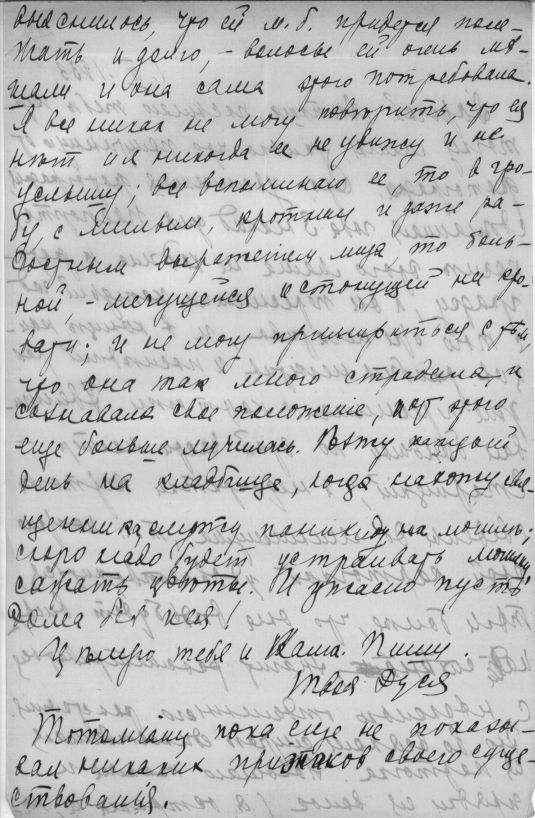 выяснилось, что ей м.б. придется поле-
жать и долго, – волосы ей очень мѣ-
шали и она сама этого потребовала.
Я все никак не могу повторить, что ея
нѣт и я никогда ее не увижу и не
услышу; все вспоминаю ее, то в гро-
бу, с милым, кротким и даже ра-
достным выражением лица, то боль-
ной, – мечущейся и стонущей на кро-
вати; и не могу примириться с тѣм,
что она так много страдала и
сознавала свое положение, и от этого
еще больше мучилась. Вожу каждый
день на кладбище, когда нахожу свя-
щенника служу панихиду на могилѣ;
скоро надо будет устраивать могилу
сажать цвѣты. И ужасно пусто
дома без нея!
Цѣлую тебя и Ваша. Пишу.
Твоя Дуся
пока еще не показы-
вал никаких признаков своего суще-
ствования.